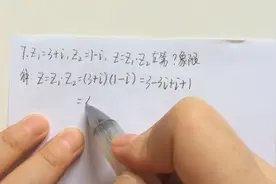 7. Z₁=3+i, Z₂=1-i, Z=Z₁·Z₂在第?象限
解: Z=Z₁·Z₂=(3+i)(1-i)=3-3i+i+1
=